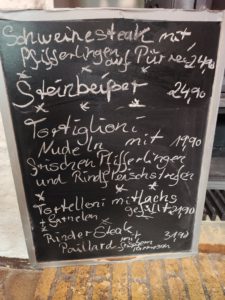 Schweinesteak mit
Pfifferlingen auf Püree 24,90
Steinbeißer 24,90
Tortiglioni
Nudeln mit 19,90
frischen Pfifferlingen
und Rindfleischstreifen
Tortelloni mit Lachs
gefüllt 21,90
Garnelen
Rinder Steak
Paillard mit
Parmesan